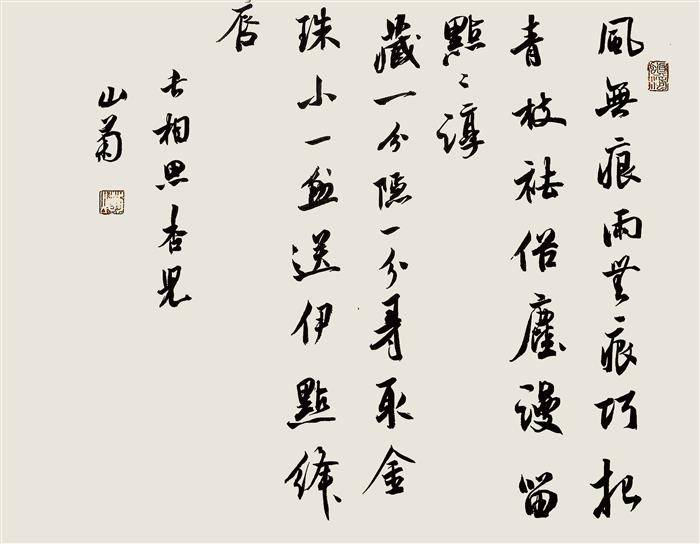 風無痕雨無痕巧把
青枝祛俗塵漫留
點〻淳
藏一分隱一分尋取金
珠小一盆送伊點絳
唇
長相思杏兒
山菊